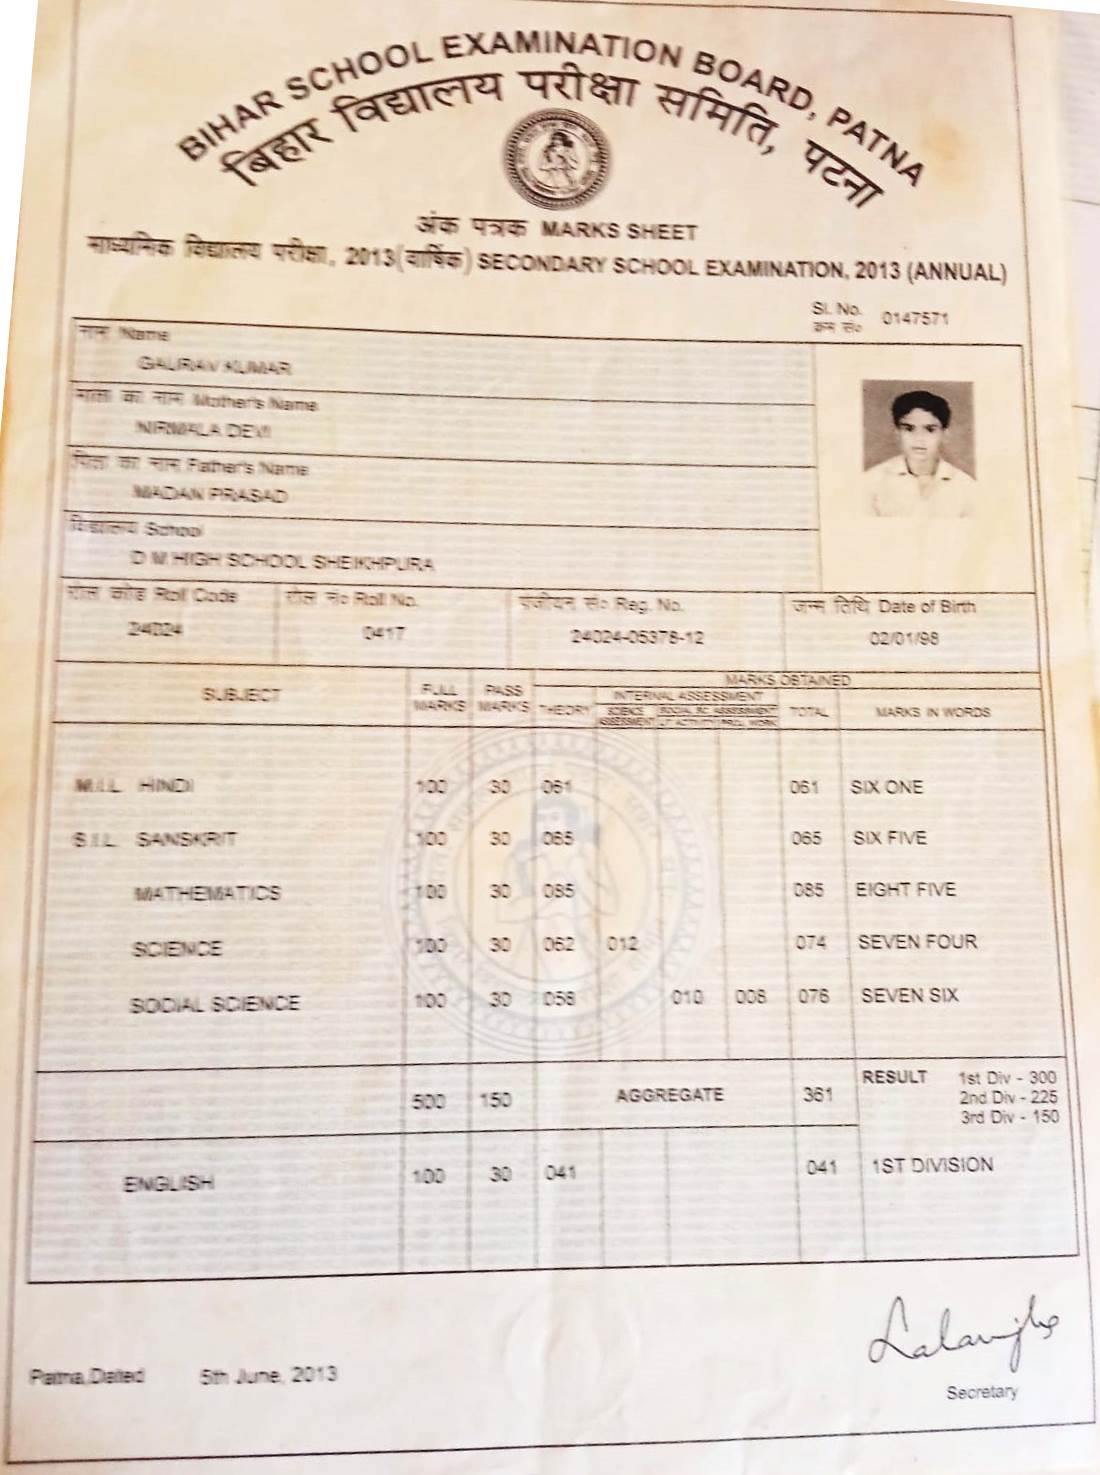 BIHAR SCHOOL EXAMINATION BOARD, PATNA
बिहार विद्यालय परीक्षा समिति, पटना
अंक पत्रक MARKS SHEET
माध्यमिक विद्यालय परीक्षा, 2013(वार्षिक) SECONDARY SCHOOL EXAMINATION, 2013 (ANNUAL)
Sl. No. 0147571
क्रम सं०
नाम Name
GAURAV KUMAR
माता का नाम Mother's Name
NIRMALA DEVI
पिता का नाम Father's Name
MADAN PRASAD
विद्यालय School
D M HIGH SCHOOL SHEIKHPURA
रोल कोड Roll Code रोल नं० Roll No. पंजीयन सं० Reg. No. जन्म तिथि Date of Birth
24024 0417 24024-05378-12 02/01/98
MARKS OBTAINED
SUBJECT FULL MARKS PASS MARKS THEORY INTERNAL ASSESSMENT TOTAL MARKS IN WORDS
SCIENCE ASSESSMENT SOCIAL SC. ASSESSMENT
LIT ACTIVITY PROJ. WORK
M.I.L HINDI 100 30 061 061 SIX ONE
S.I.L SANSKRIT 100 30 065 065 SIX FIVE
MATHEMATICS 100 30 085 085 EIGHT FIVE
SCIENCE 100 30 062 012 074 SEVEN FOUR
SOCIAL SCIENCE 100 30 058 010 008 076 SEVEN SIX
500 150 AGGREGATE 361 RESULT 1st Div - 300
2nd Div - 225
3rd Div - 150
ENGLISH 100 30 041 041 1ST DIVISION
Patna,Dated 5th June, 2013
Secretary